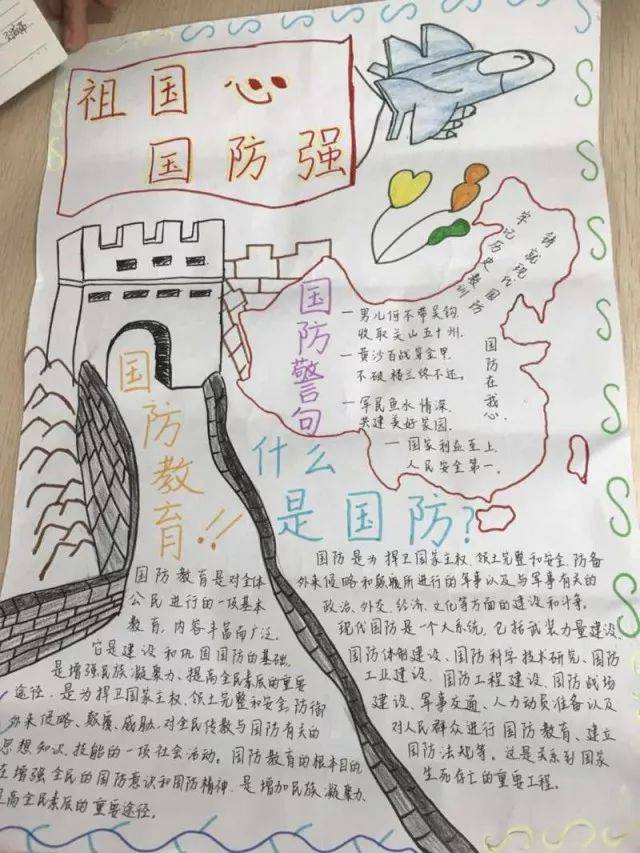 祖国心
国防强
牢记历史教训
铸就现代国防
国防警句
一男儿何不带吴钩,
收取关山五十州.
一黄沙百战穿金甲.
不破楼兰终不还。
一军民鱼水情深.
共建美好家园.
一国家利益至上.
人民安全第一。
国防在我心.
国防教育!!
什么
是国防?
国防教育是对全体
公民进行的一项基本
教育,内容丰富而广泛.
它是建设和巩固国防的基础.
是增强民族凝聚力、提高全民素质的重要
途径.是为捍卫国家主权、领土完整和安全,防御
外来侵略、颠覆、威胁.对全民传教与国防有关的
思想知识、技能的一项社会活动。国防教育的根本目的
在增强全民的国防意识和国防精神.是增加民族凝聚力、
提高全民素质的重要途径。
国防是为捍卫国家主权、领土完整和安全,防备
外来侵略和颠覆所进行的军事以及与军事有关的
政治、外交、经济、文化等方面的建设和斗争。
现代国防是一个大系统,包括武装力量建设、
国防体制建设、国防科学技术研究、国防
工业建设、国防工程建设、国防战场
建设、军事交通、人力动员准备以及
对人民群众进行国防教育、建立
国防法规等。这是关系到国家
生死存亡的重要工程。